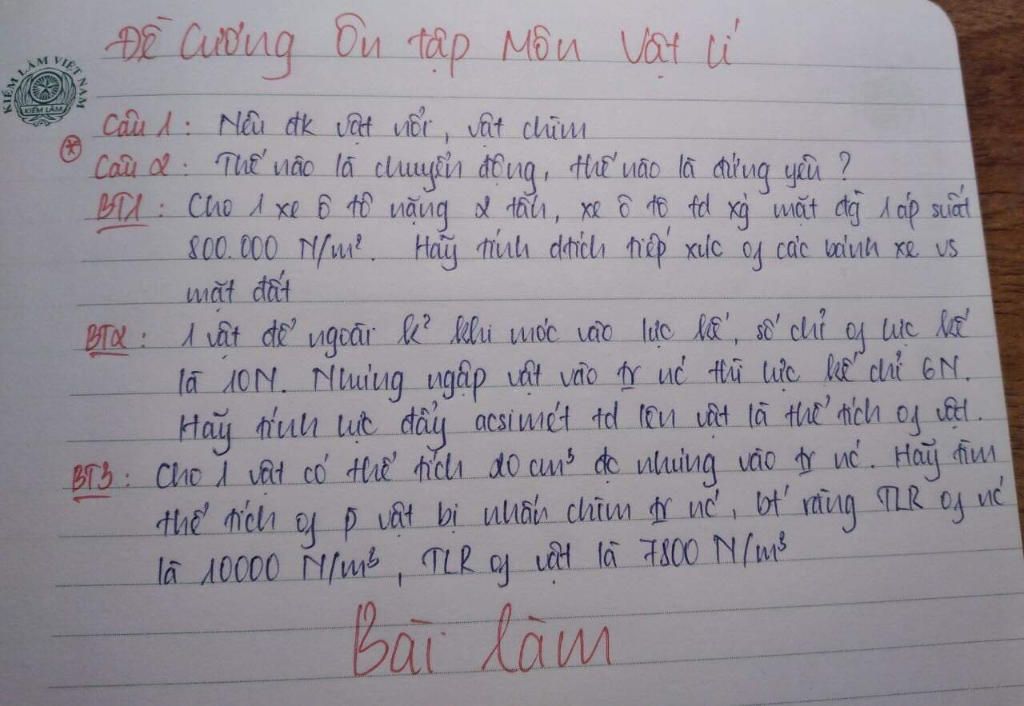 Đề Cương Ôn tập Môn Vật Lí
KIỂM LÂM VIỆT NAM
KIỂM LÂM
Câu 1: Nêu đk vật nổi, vật chìm
Câu 2: Thế nào là chuyển động, thế nào là đứng yên?
BT1: Cho 1 xe ô tô nặng 2 tấn, xe ô tô td xg mặt đg 1 áp suất
800.000 N/m². Hãy tính dtích tiếp xúc of các bánh xe vs
mặt đất
BT2: 1 vật để ngoài k² khi móc vào lực kế, số chỉ of lực kế
là 10N. Nhúng ngập vật vào tr nc thì lực kế chỉ 6N.
Hãy tính lực đẩy acsimét td lên vật là thể tích of vật.
BT3: Cho 1 vật có thể tích 20 cm³ đc nhúng vào tr nc. Hãy tìm
thể tích of p vật bị nhấn chìm tr nc, bt rằng TLR of nc
là 10000 N/m³, TLR of vật là 7800 N/m³
Bài làm